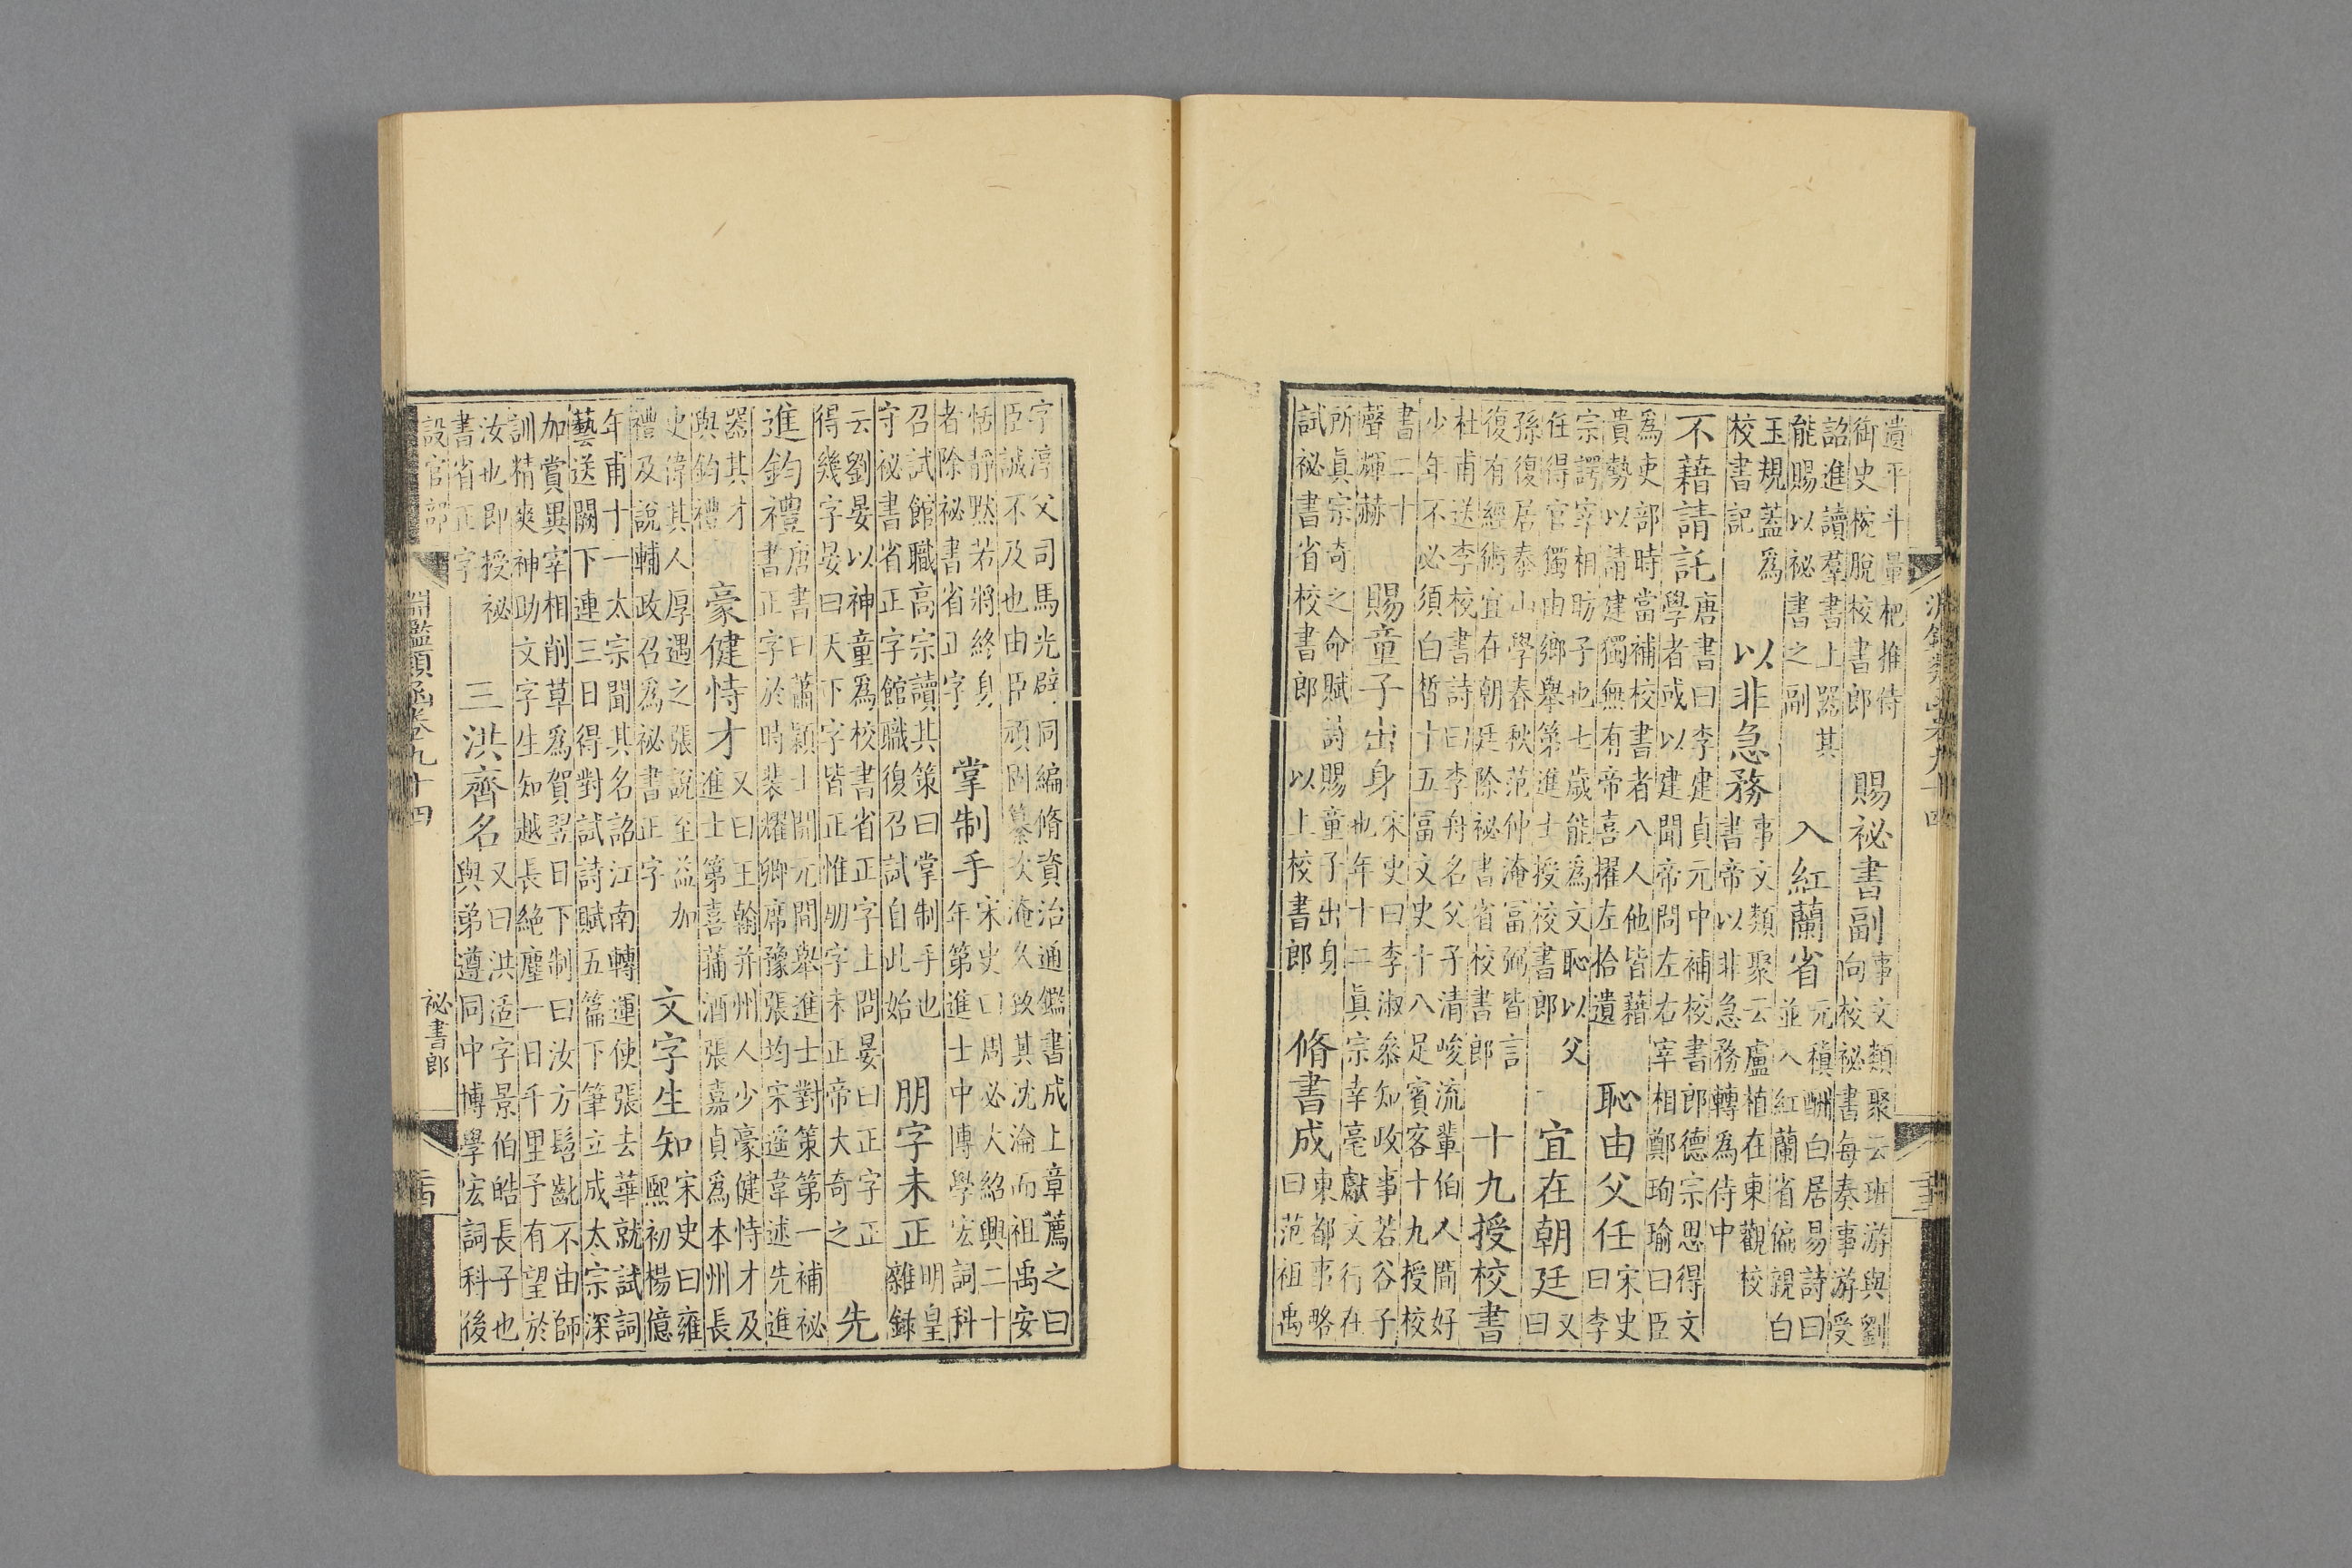 淵鑑類函卷九十四
遺平斗量杷推侍
御史椀脫校書郎
賜祕書副
事文類聚云班游與劉
向校祕書每奏事游受
詔進讀羣書上器其
能賜以祕書之副
入紅蘭省
元稹酬白居易詩曰
並入紅蘭省偏親白
玉規蓋爲
校書記
以非急務
事文類聚云盧植在東觀校
書帝以非急務轉爲侍中
不藉請託
唐書曰李建貞元中補校書郎德宗思得文
學者或以建聞帝問左右宰相鄭珣瑜曰臣
爲吏部時當補校書者八人他皆藉
貴勢以請建獨無有帝喜擢左拾遺
恥由父任
宋史
曰李
宗諤宰相昉子也七歲能爲文恥以父
任得官獨由鄉舉第進士授校書郎
宜在朝廷
又
曰
孫復居泰山學春秋范仲淹富弼皆言
復有經術宜在朝廷除祕書省校書郎
十九授校書
杜甫送李校書詩曰李舟名父子清峻流輩伯人間好
少年不必須白皙十五富文史十八足賓客十九授校
書二十
聲輝赫
賜童子出身
宋史曰李淑參知政事若谷子
也年十二眞宗幸亳獻文行在
所眞宗奇之命賦詩賜童子出身
試祕書省校書郎以上校書郎
脩書成
東都事略
曰范祖禹
字淳父司馬光辟同編脩資治通鑑書成上章薦之曰
臣誠不及也由臣頑固纂次淹久致其沈淪而祖禹安
恬靜默若將終身
者除祕書省正字
掌制手
宋史曰周必大紹興二十
年第進士中博學宏詞科
召試館職高宗讀其策曰掌制手也
守祕書省正字館職復召試自此始
朋字未正
明皇
雜錄
云劉晏以神童爲校書省正字上問晏曰正字正
得幾字晏曰天下字皆正惟朋字未正帝大奇之
先
進鈞禮
唐書曰蕭穎士開元間舉進士對策第一補祕
書正字於時裴耀卿席豫張均宋遙韋述先進
器其才
與鈞禮
豪健恃才
又曰王翰并州人少豪健恃才及
進士第喜蒱酒張嘉貞爲本州長
史偉其人厚遇之張說至益加
禮及說輔政召爲祕書正字
文字生知
宋史曰雍
熙初楊億
年甫十一太宗聞其名詔江南轉運使張去華就試詞
藝送闕下連三日得對試詩賦五篇下筆立成太宗深
加賞異宰相削草爲賀翌日下制曰汝方髫齔不由師
訓精爽神助文字生知越長絕塵一日千里予有望於
汝也即授祕
書省正字
三洪齊名
又曰洪适字景伯皓長子也
與弟遵同中博學宏詞科後
設官部
淵鑑類函卷九十四
祕書郎